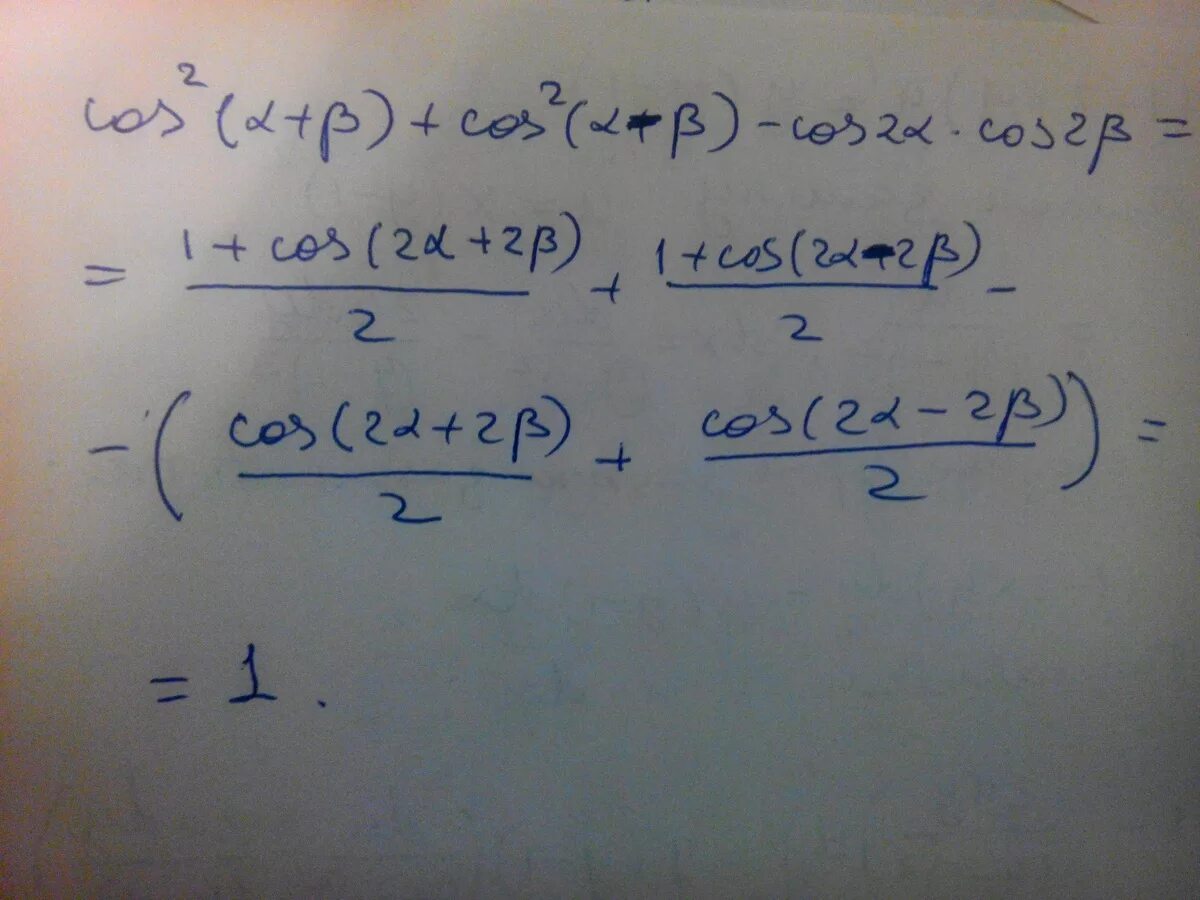 cos²(α+β)+cos²(α-β)-cos2α·cos2β=
= (1+cos(2α+2β))/2 + (1+cos(2α-2β))/2 -
-(cos(2α+2β)/2 + cos(2α-2β)/2) =
= 1.